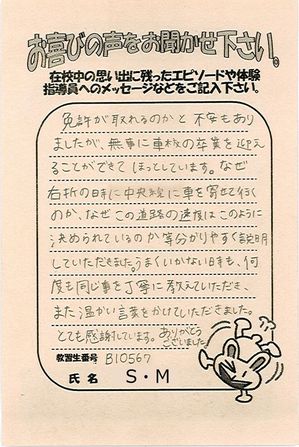 お喜びの声をお聞かせ下さい。
在校中の思い出に残ったエピソードや体験
指導員へのメッセージなどをご記入下さい。
免許が取れるのかと不安もあり
ましたが、無事に車校の卒業を迎え
ることができてほっとしています。なぜ
右折の時に中央線に車を寄せて行く
のか、なぜこの道路の速度はこのように
決められているのか等分かりやすく説明
していただきました。うまくいかない時も、何
度も同じ事を丁寧に教えていただき、
また温かい言葉をかけていただきました。
とても感謝しています。ありがとう
ございました。
教習生番号 B10567
氏名 S・M